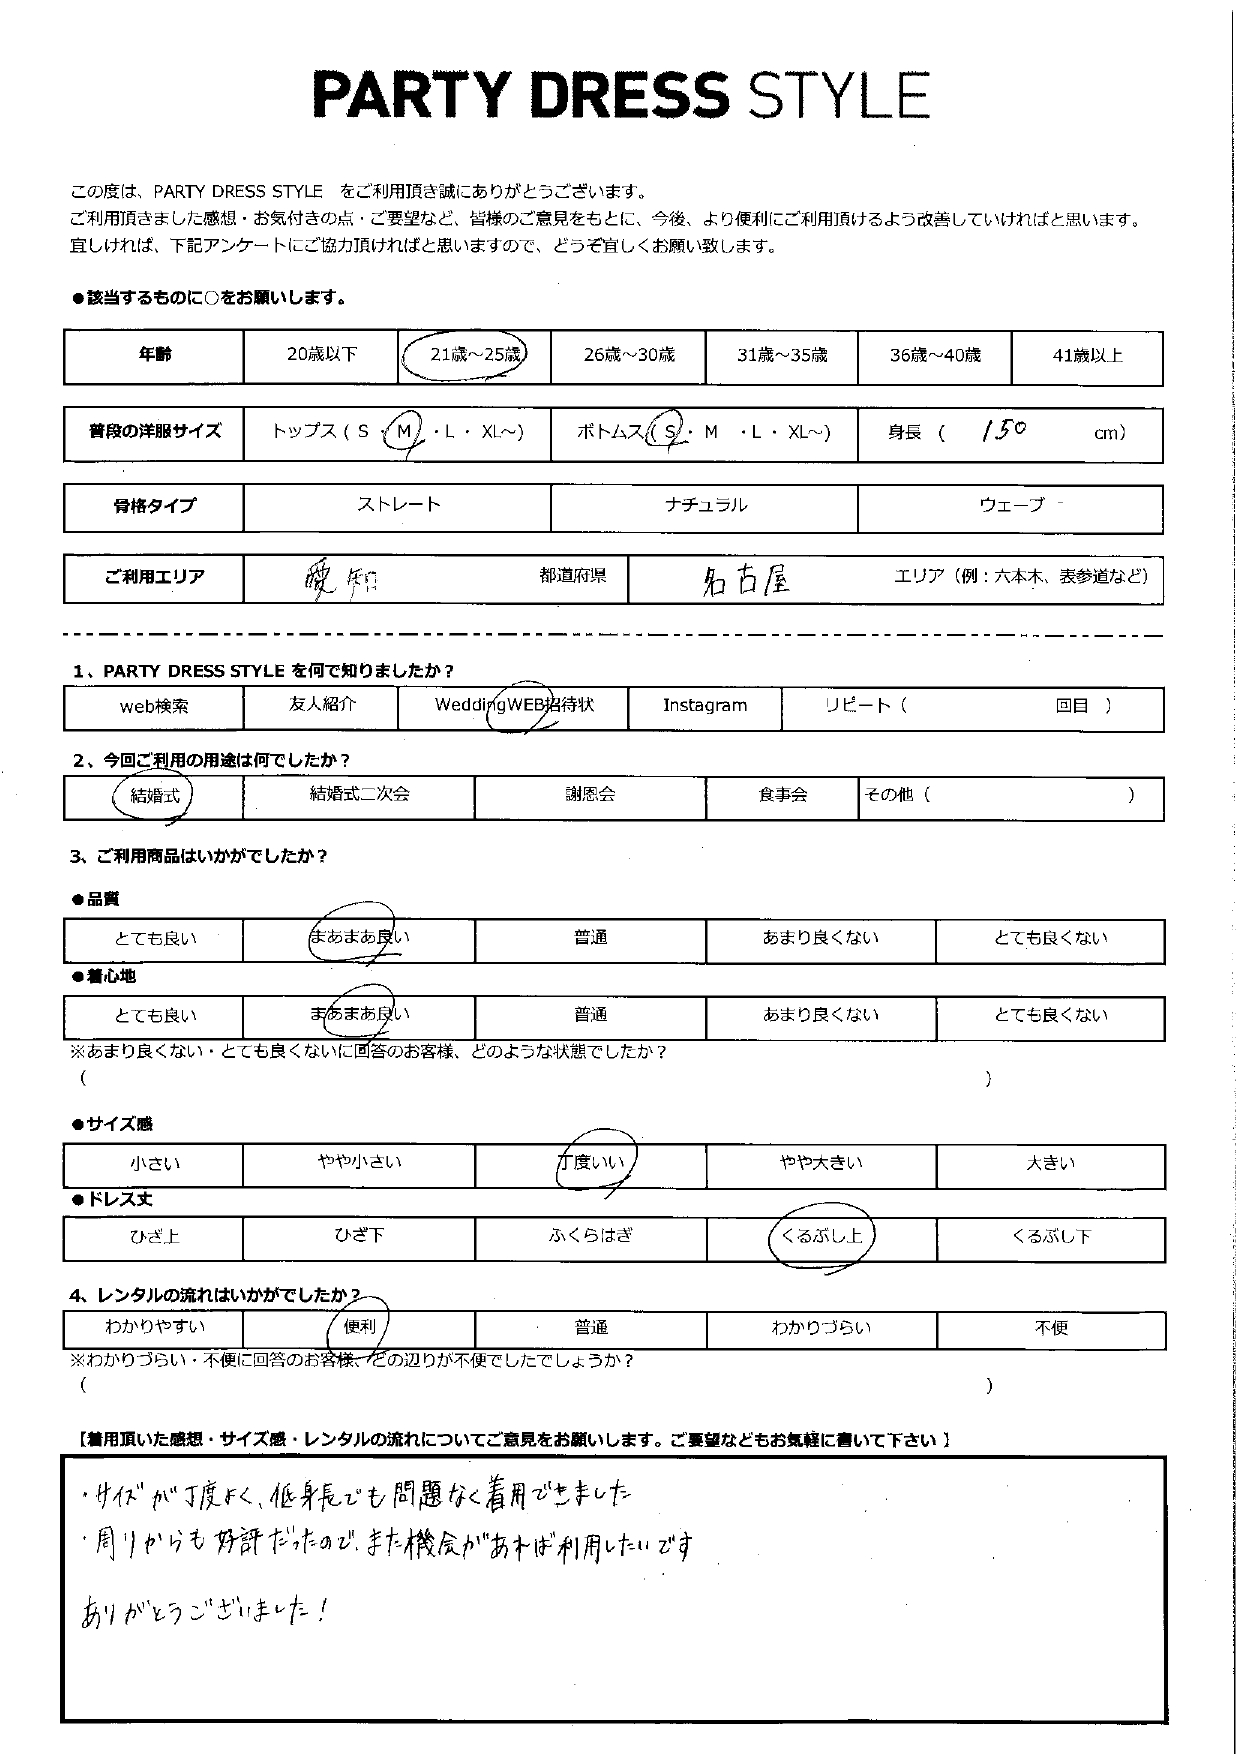 PARTY DRESS STYLE
この度は、PARTY DRESS STYLE をご利用頂き誠にありがとうございます。
ご利用頂きました感想・お気付きの点・ご要望など、皆様のご意見をもとに、今後、より便利にご利用頂けるよう改善していければと思います。
宜しければ、下記アンケートにご協力頂ければと思いますので、どうぞ宜しくお願い致します。
●該当するものに○をお願いします。
年齢 20歳以下 21歳～25歳 26歳～30歳 31歳～35歳 36歳～40歳 41歳以上
普段の洋服サイズ トップス ( S ・ M ・ L ・ XL～) ボトムス ( S ・ M ・ L ・ XL～) 身長 ( 150 cm)
骨格タイプ ストレート ナチュラル ウェーブ
ご利用エリア 愛知 都道府県 名古屋 エリア（例：六本木、表参道など）
1、PARTY DRESS STYLE を何で知りましたか？
web検索 友人紹介 WeddingWEB招待状 Instagram リピート（ 回目 ）
2、今回ご利用の用途は何でしたか？
結婚式 結婚式二次会 謝恩会 食事会 その他（ ）
3、ご利用商品はいかがでしたか？
●品質
とても良い まあまあ良い 普通 あまり良くない とても良くない
●着心地
とても良い まあまあ良い 普通 あまり良くない とても良くない
※あまり良くない・とても良くないに回答のお客様、どのような状態でしたか？
（ ）
●サイズ感
小さい やや小さい 丁度いい やや大きい 大きい
●ドレス丈
ひざ上 ひざ下 ふくらはぎ くるぶし上 くるぶし下
4、レンタルの流れはいかがでしたか？
わかりやすい 便利 普通 わかりづらい 不便
※わかりづらい・不便に回答のお客様、どの辺りが不便でしたでしょうか？
（ ）
【着用頂いた感想・サイズ感・レンタルの流れについてご意見をお願いします。ご要望などもお気軽に書いて下さい 】
・サイズが丁度よく、低身長でも問題なく着用できました
・周りからも好評だったので、また機会があれば利用したいです
ありがとうございました！